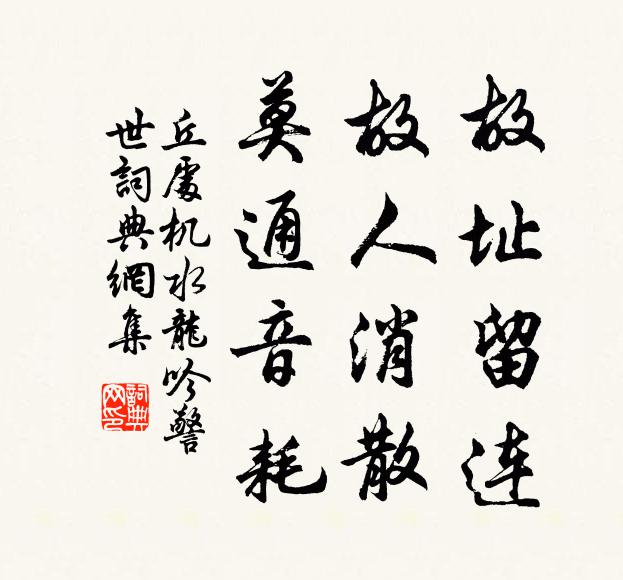 故址留连
故人消散
莫通音耗
丘處机水龍吟警
世詞典網集
詞典网印